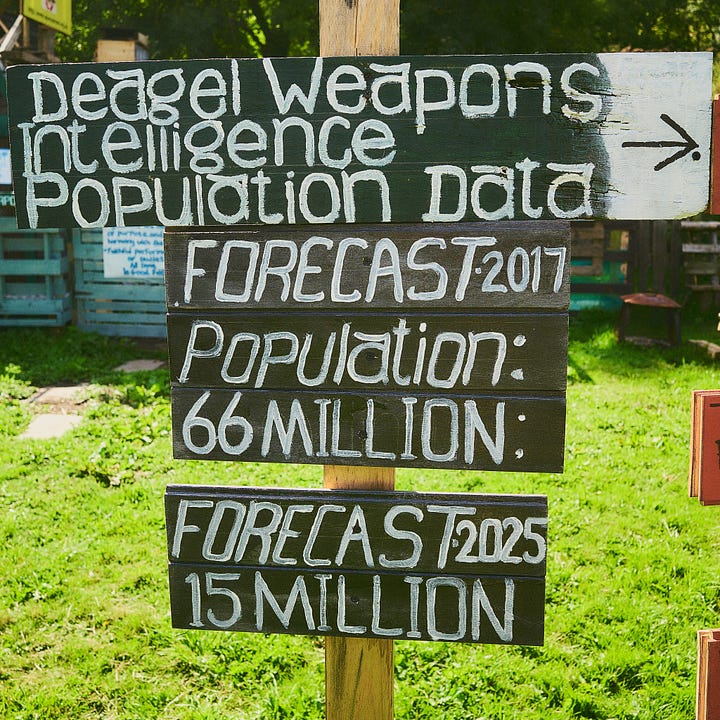 Deagel Weapons
Intelligence
Population Data
FORECAST·2017
Population:
66 MILLION:
FORECAST·2025
15 MILLION